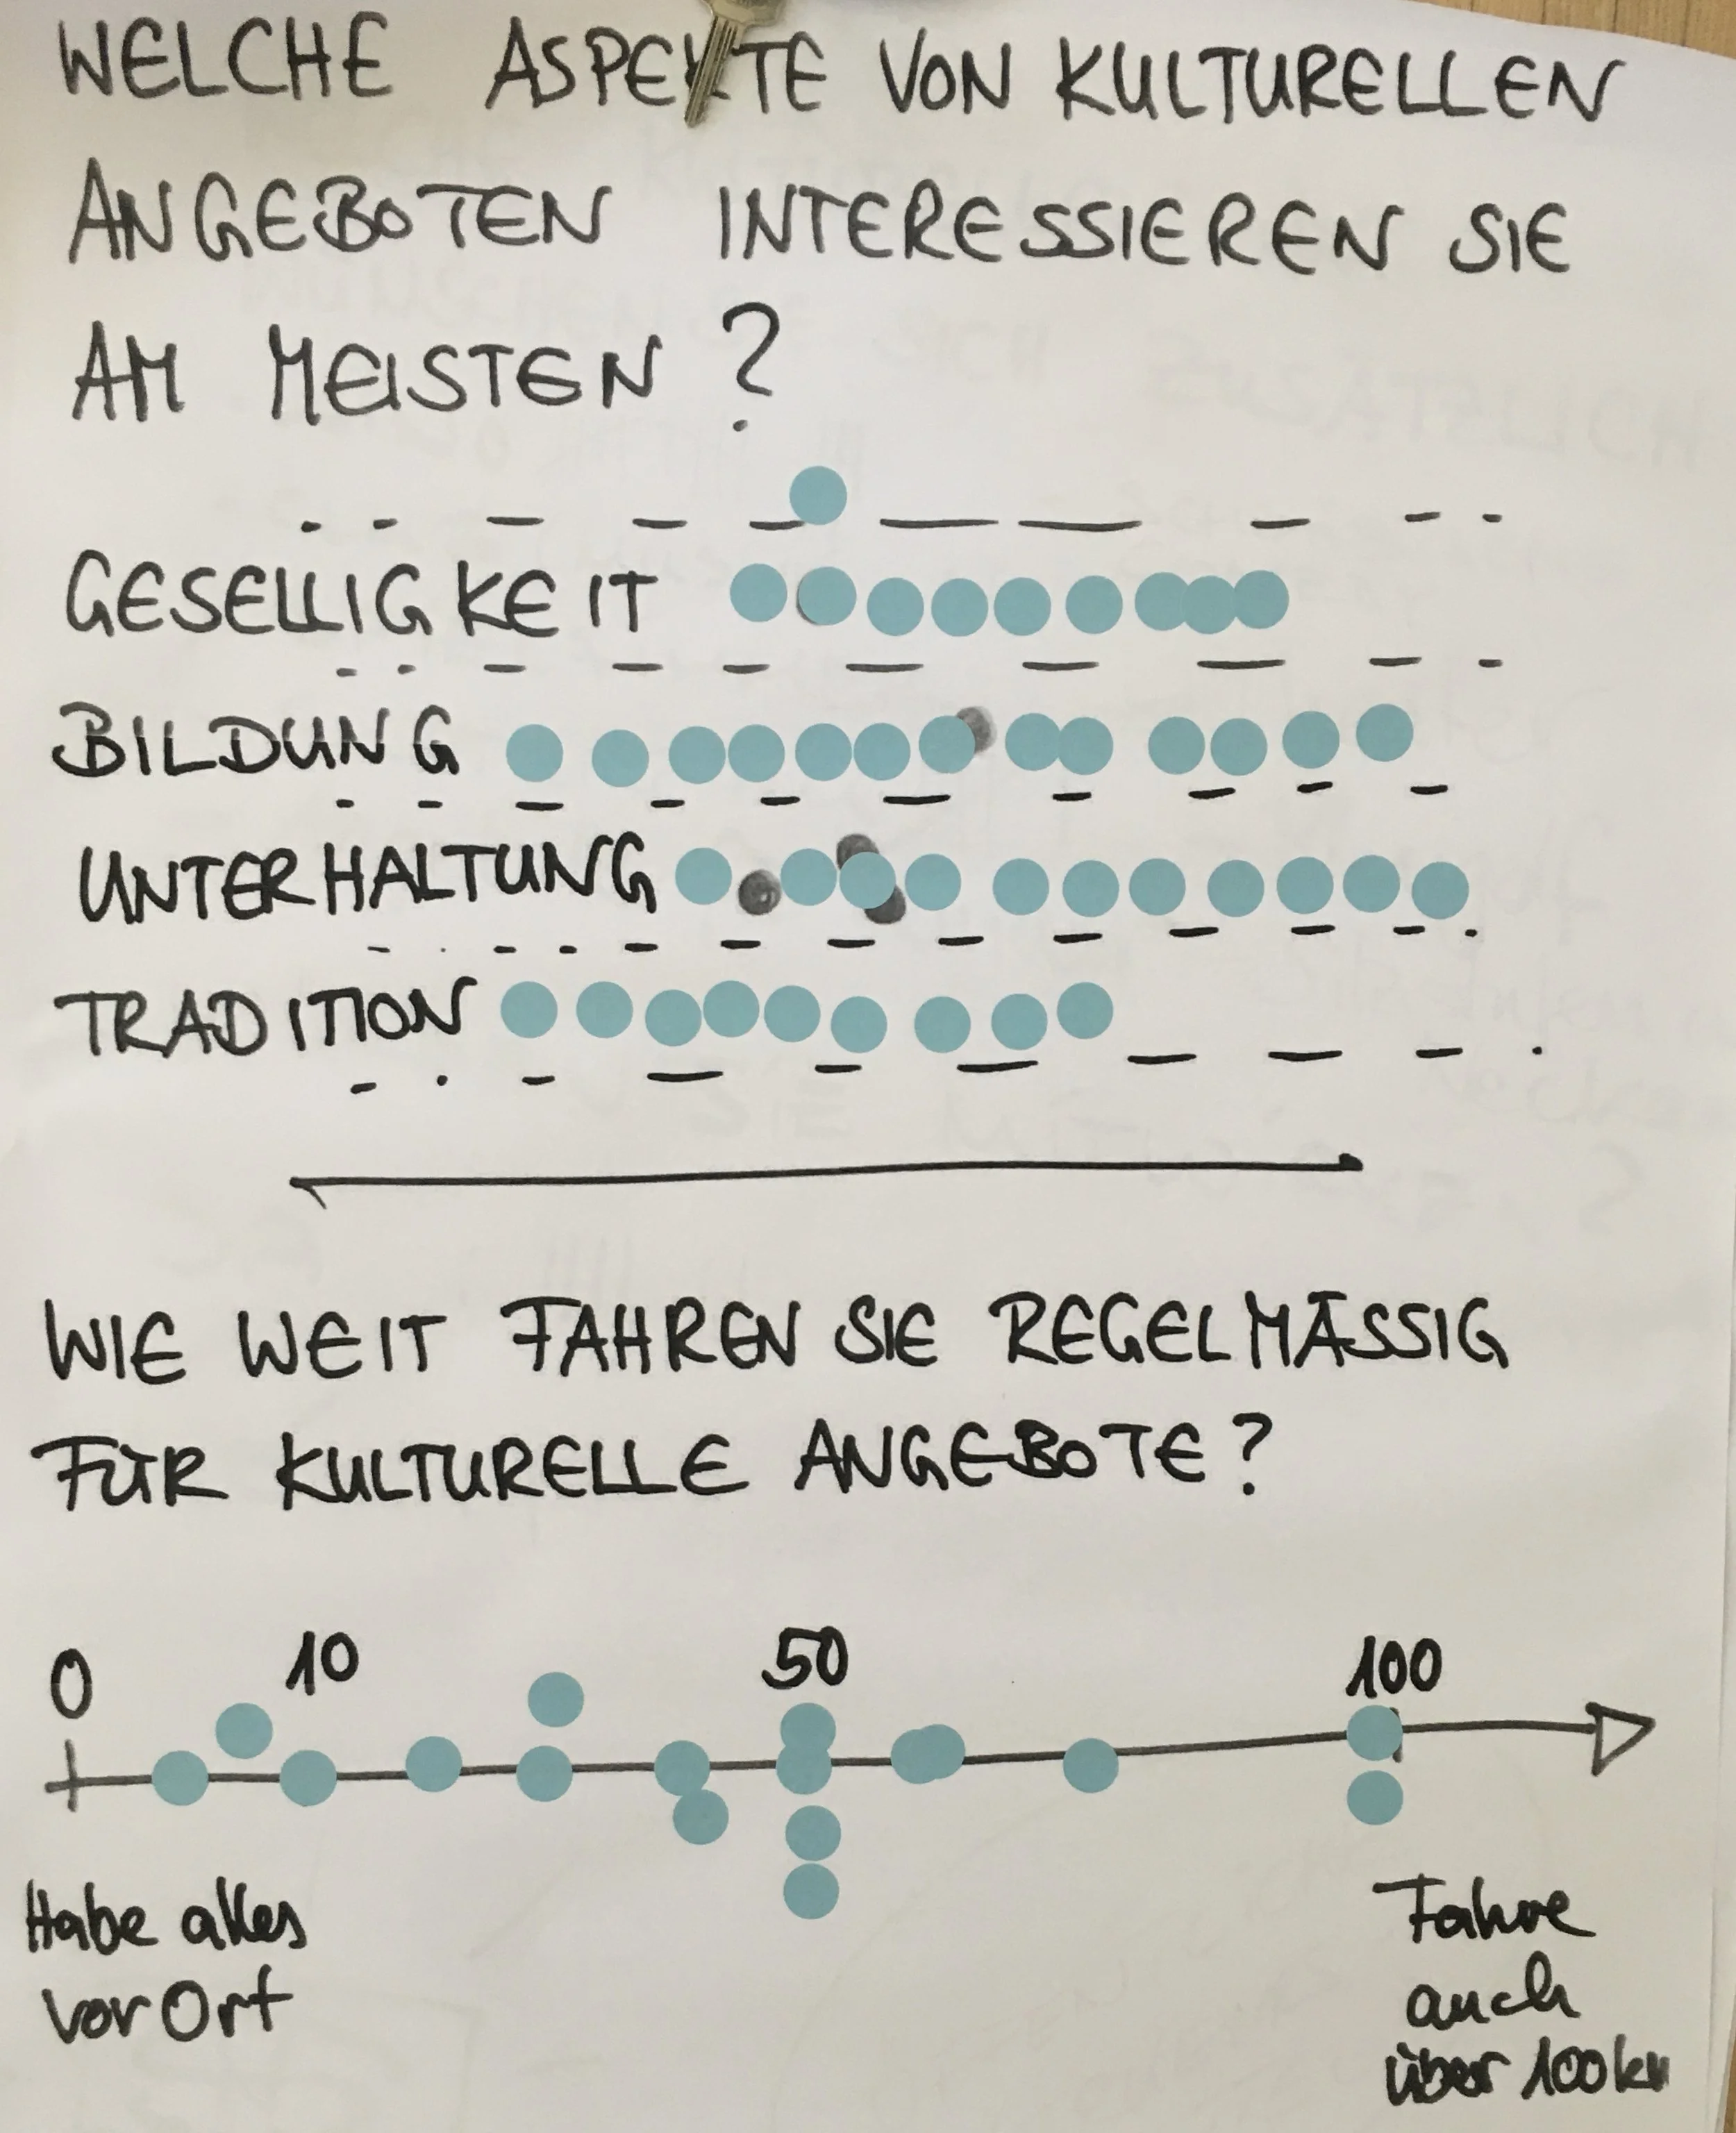 WELCHE ASPEKTE VON KULTURELLEN
ANGEBOTEN INTERESSIEREN SIE
AM MEISTEN?
GESELLIGKEIT
BILDUNG
UNTERHALTUNG
TRADITION
WIE WEIT FAHREN SIE REGELMÄSSIG
FÜR KULTURELLE ANGEBOTE?
0 10 50 100
Habe alles
vor Ort
Fahre
auch
über 100km